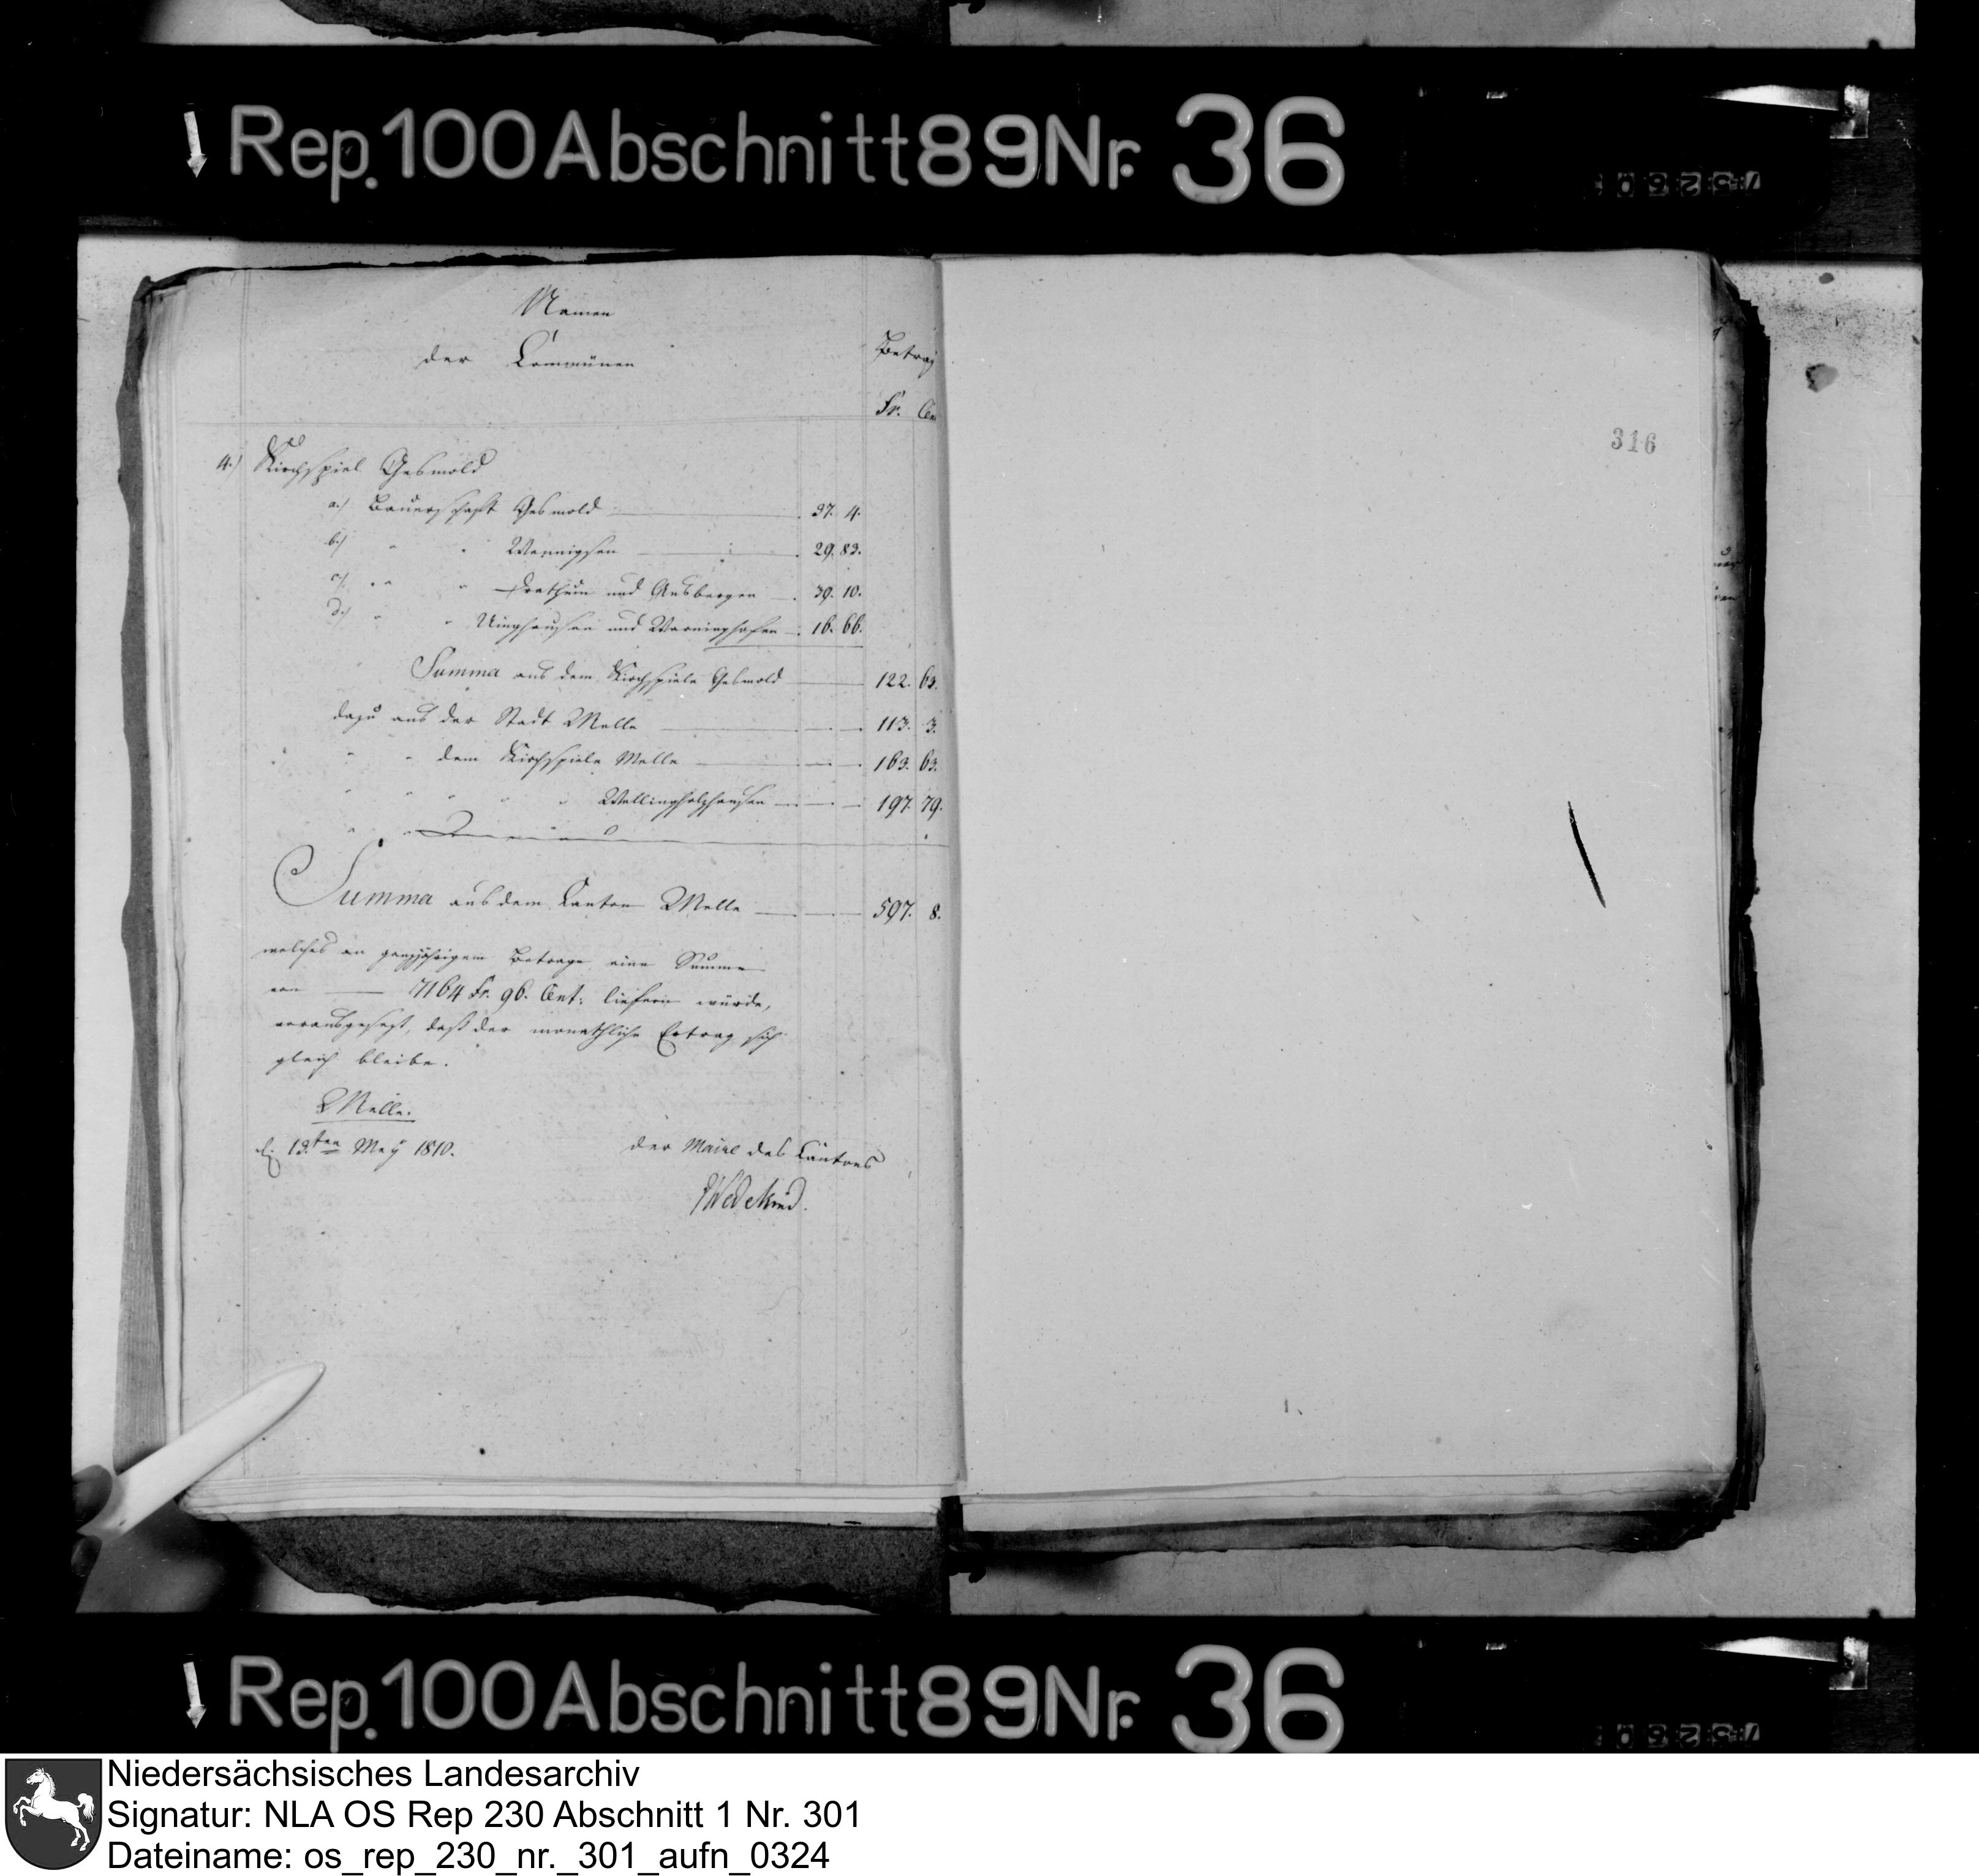 Rep. 100 Abschnitt 89 Nr. 36
Namen
der Communen
Betrag
Fr. Cen
316
4.) Kirchspiel Gesmold
a.) Bauerschaft Gesmold 37. 4.
b.) " " Wennigsen 29. 83.
c.) " " Drathum und Ausbergen 39. 10.
d.) " " Uinghausen und Warringhofen 16. 66.
Summa aus dem Kirchspiele Gesmold 122. 63.
dazu aus der Stadt Melle 113. 3.
" " dem Kirchspiele Melle 163. 63.
" " " " " Wellingholzhausen 197. 79.
Summa aus dem Canton Melle 597. 8.
welches an ganzjährigem Betrage eine Summe
von 7164 Fr. 96. Cent: liefern würde,
vorausgesezt, daß der monathliche Ertrag sich
gleich bleibe.
Melle.
d. 13.ten May 1810.
der Maire des Cantons
Wedekind.
Rep. 100 Abschnitt 89 Nr. 36
Niedersächsisches Landesarchiv
Signatur: NLA OS Rep 230 Abschnitt 1 Nr. 301
Dateiname: os_rep_230_nr._301_aufn_0324